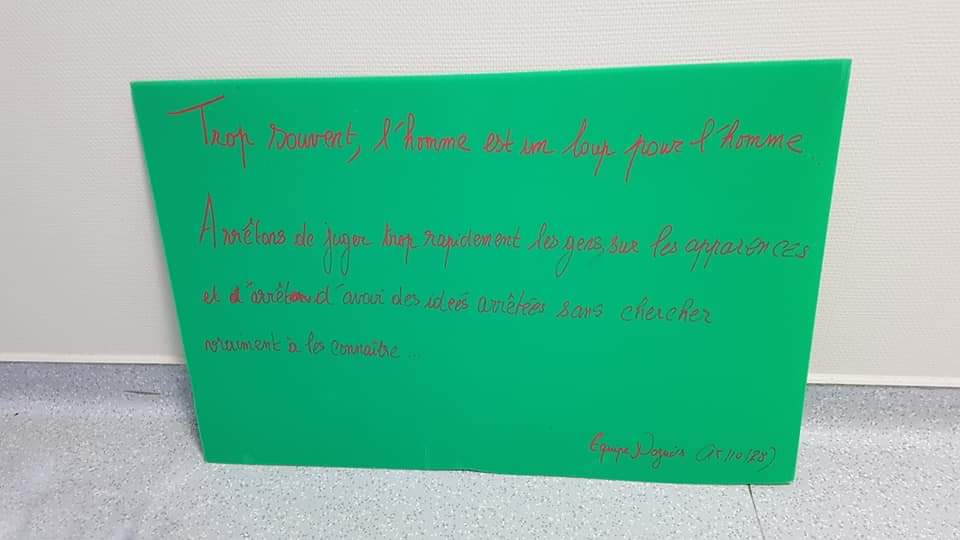 Trop souvent, l'homme est un loup pour l'homme.
Arrêtons de juger trop rapidement les gens, sur les apparences
et d'arrêton d'avoir des ideés arrêtées sans chercher
vraiment à les connaître ...
Equipe (15/10/25)